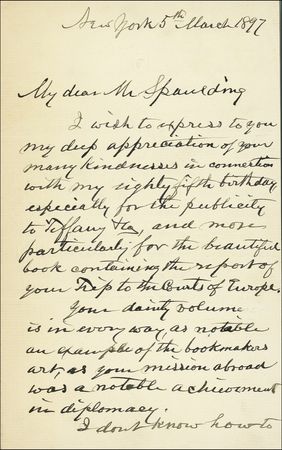 New York 5th March 1897
My dear Mr Spaulding
I wish to express to you
my deep appreciation of your
many kindnesses in connection
with my eighty fifth birthday
especially for the publicity
to Tiffany & Co, and more
particularly for the beautiful
book containing the report of
your Trip to the Courts of Europe.
Your dainty volume
is in every way as notable
an example of the bookmakers
art, as your mission abroad
was a notable achievement
in diplomacy.
I dont know how to